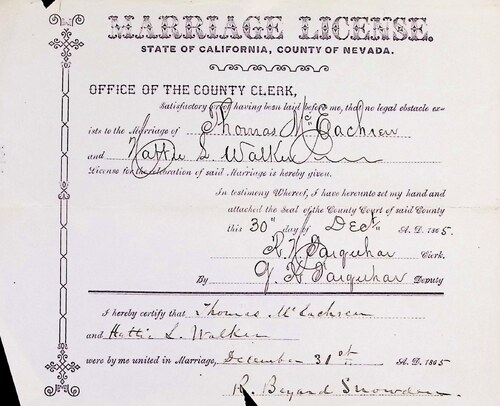 MARRIAGE LICENSE.
STATE OF CALIFORNIA, COUNTY OF NEVADA.
OFFICE OF THE COUNTY CLERK,
Satisfactory proof having been laid before me, that no legal obstacle ex-
ists to the Marriage of Thomas McEachren
and Hattie L Walker
License for the celebration of said Marriage is hereby given.
In testimony Whereof, I have hereunto set my hand and
attached the Seal of the County Court of said County
this 30" day of Dec A. D. 1865.
R. H. Farquhar Clerk.
By G. K. Farquhar Deputy
I hereby certify that Thomas McEachren
and Hattie L. Walker
were by me united in Marriage, December 31st A. D. 1865
R. Beyard Snowden.